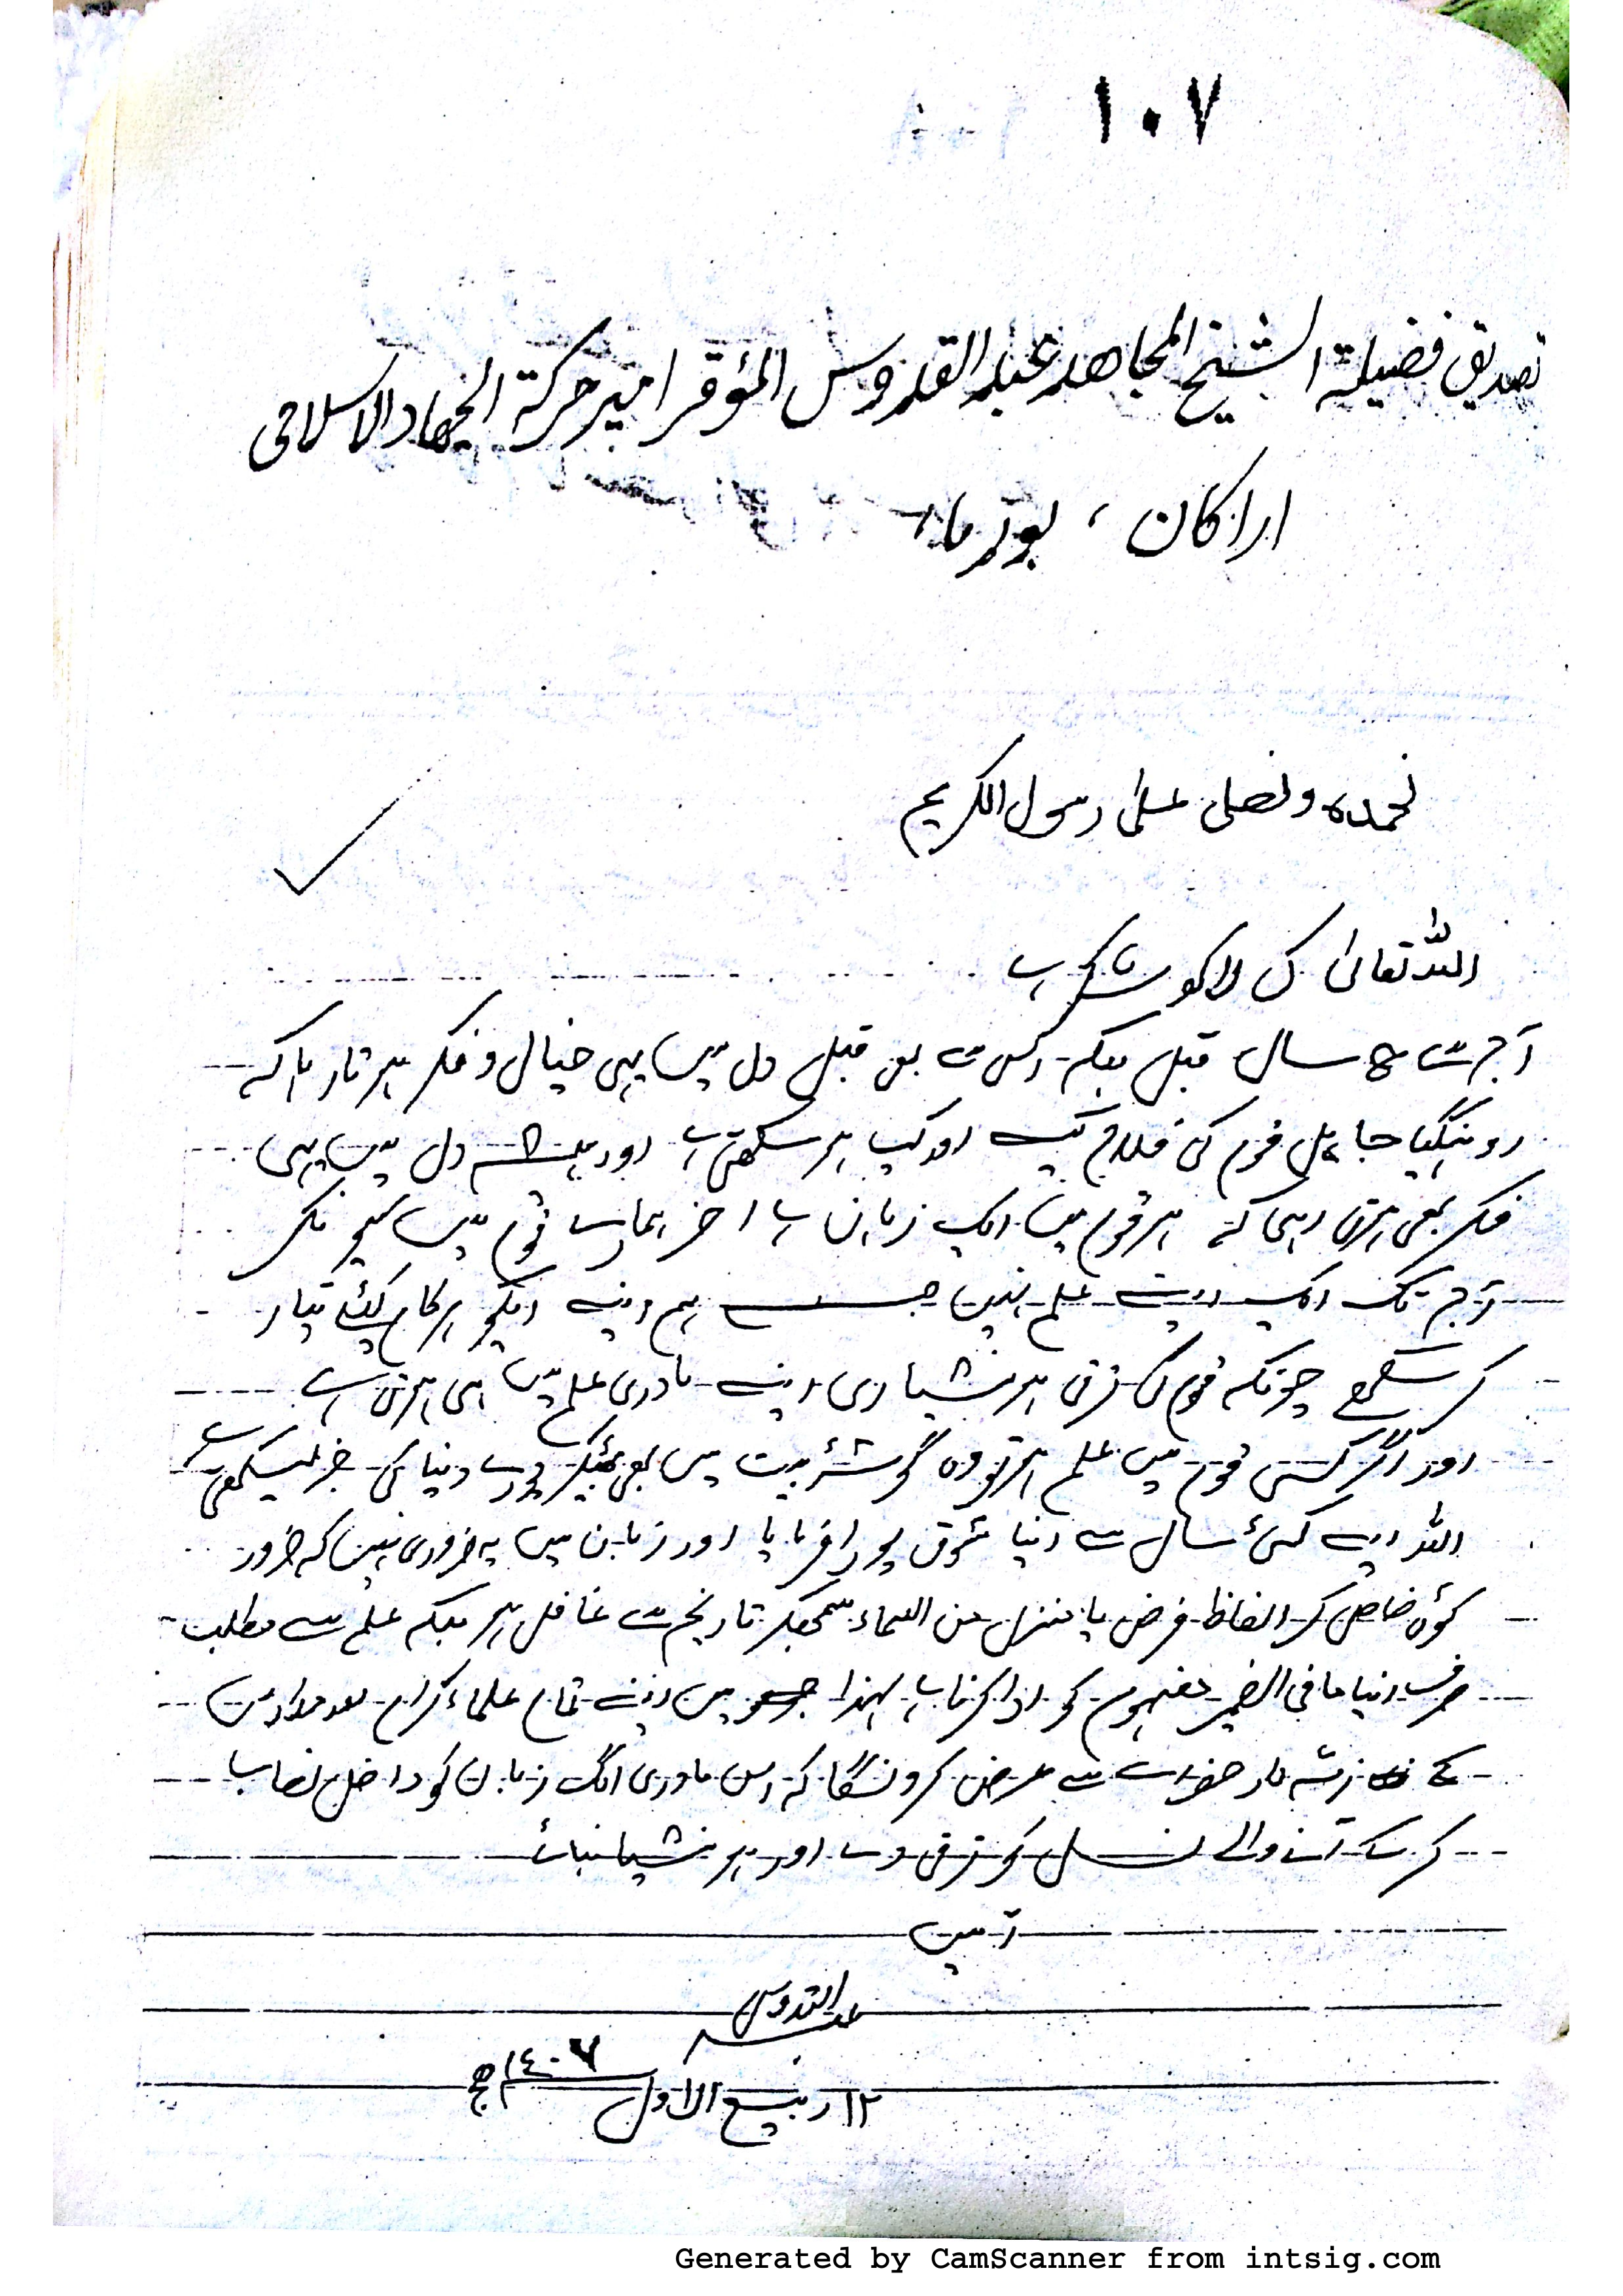 ١٠٧
تصدیق فضیلة الشیخ المجاهد عبد القدوس المؤقر امیر حرکة الجهاد الاسلامی
اراکان ، بورما،
نحمده ونصلی علی رسول الکریم
اللہ تعالیٰ کی لاکو شکر ہے
آج سے سال قبل بلکہ اس سے بھی قبل دل میں یہی خیال و فکر ہوتا رہا کہ
روہنگیا جاہل قوم کی فلاح کیسے اور کب ہو سکتی ہے اور ہمیشہ دل میں یہی
فکر بھی ہوتی رہی کہ ہر قوم میں ایک زبان ہے آخر ہمارے قوم میں کیوں نہیں
آج تک ایک ایسے علم نہیں جس سے ہم اپنے ہر کام کیلئے تیار
کر سکے چونکہ قوم کی ترقی ہوشیاری اپنے مادری علم میں ہی ہوتی ہے
اور اگر کسی قوم میں علم ہو تو وہ گوشۂ بیت میں بھی بیٹھکر پورے دنیا کی خبر لے سکتی ہے
اللہ نے کئی سال سے اپنا شوق پورا فرمایا اور زبان میں یہ ضروری نہیں کہ ضرور
کوئی خاص کر الفاظ فرض یا منزل من السماء سمجھکر تاریخ سے غافل ہو بلکہ علم سے مطلب
صرف اپنا ما فی الضمیر مفہوم کو ادا کرنا ہے لہذا میں اپنے تمام علماء کرام اور مدارس
کے ذمہ دار حضرات سے عرض کرونگا کہ اس مادری الگ زبان کو داخل نصاب
کر کے آنے والے نسل کو ترقی دے اور ہوشیار بنائے
آمین
عبد القدوس
١٢ ربیع الاول ١٤٠٧ھ
Generated by CamScanner from intsig.com